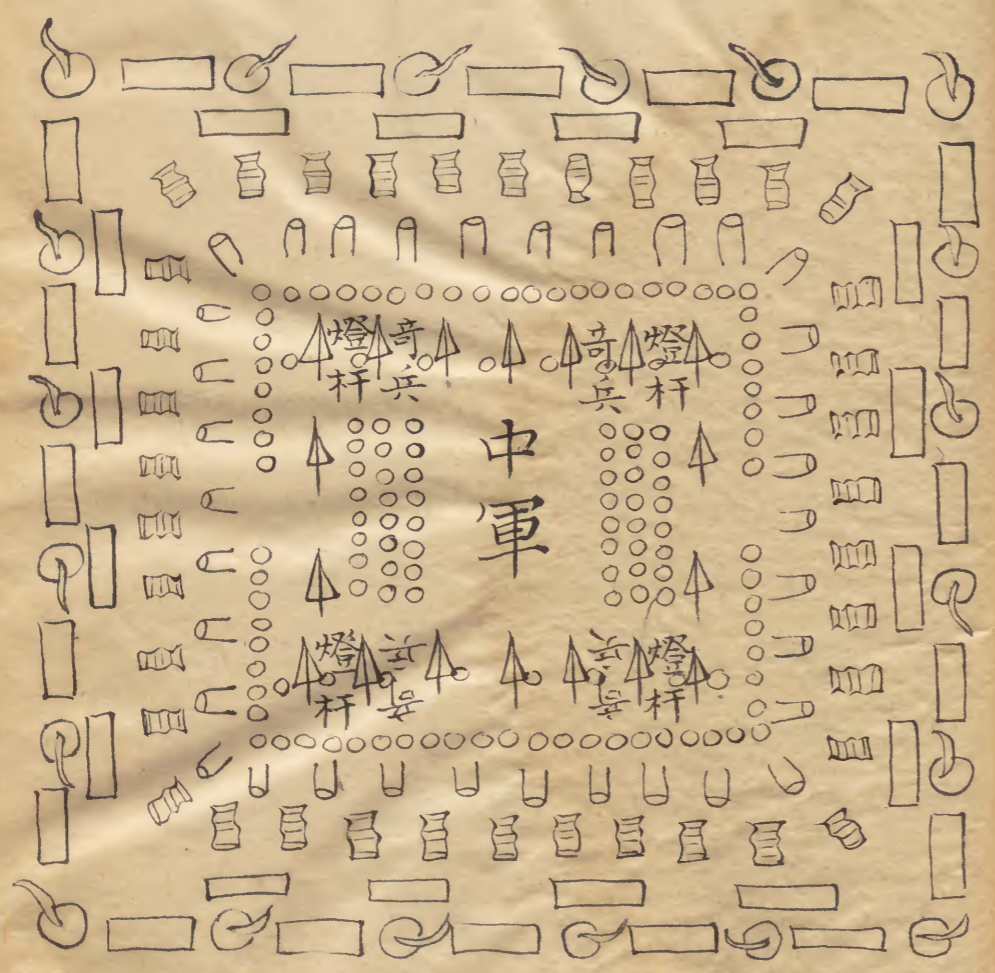 燈杆
奇兵
奇兵
燈杆
中軍
燈杆
奇兵
奇兵
燈杆